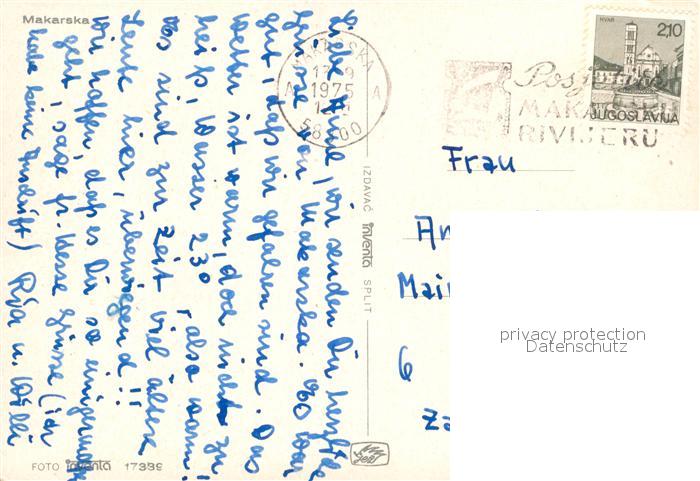 Makarska
Liebe Anne, wir senden Dir herzliche
Grüsse von Makarska. Es war
gut, daß wir gefahren sind. Das
Wetter ist warm, doch nicht zu
heiß, Wasser 23° also warm!
Es sind zur Zeit viel ältere
Leute hier, überwiegend!!
Wir hoffen, daß es Dir so einigermaßen
geht, sage Fr. Hesse Grüsse (ich
habe keine Anschrift) Ria u. Willi
MAKARSKA
1975
A A
58300
HVAR
2,10
JUGOSLAVIJA
MAKARSKU
RIVIJERU
Frau
An
Mai
6
IZDAVAČ inventa SPLIT
privacy protection
Datenschutz
FOTO inventa 17339